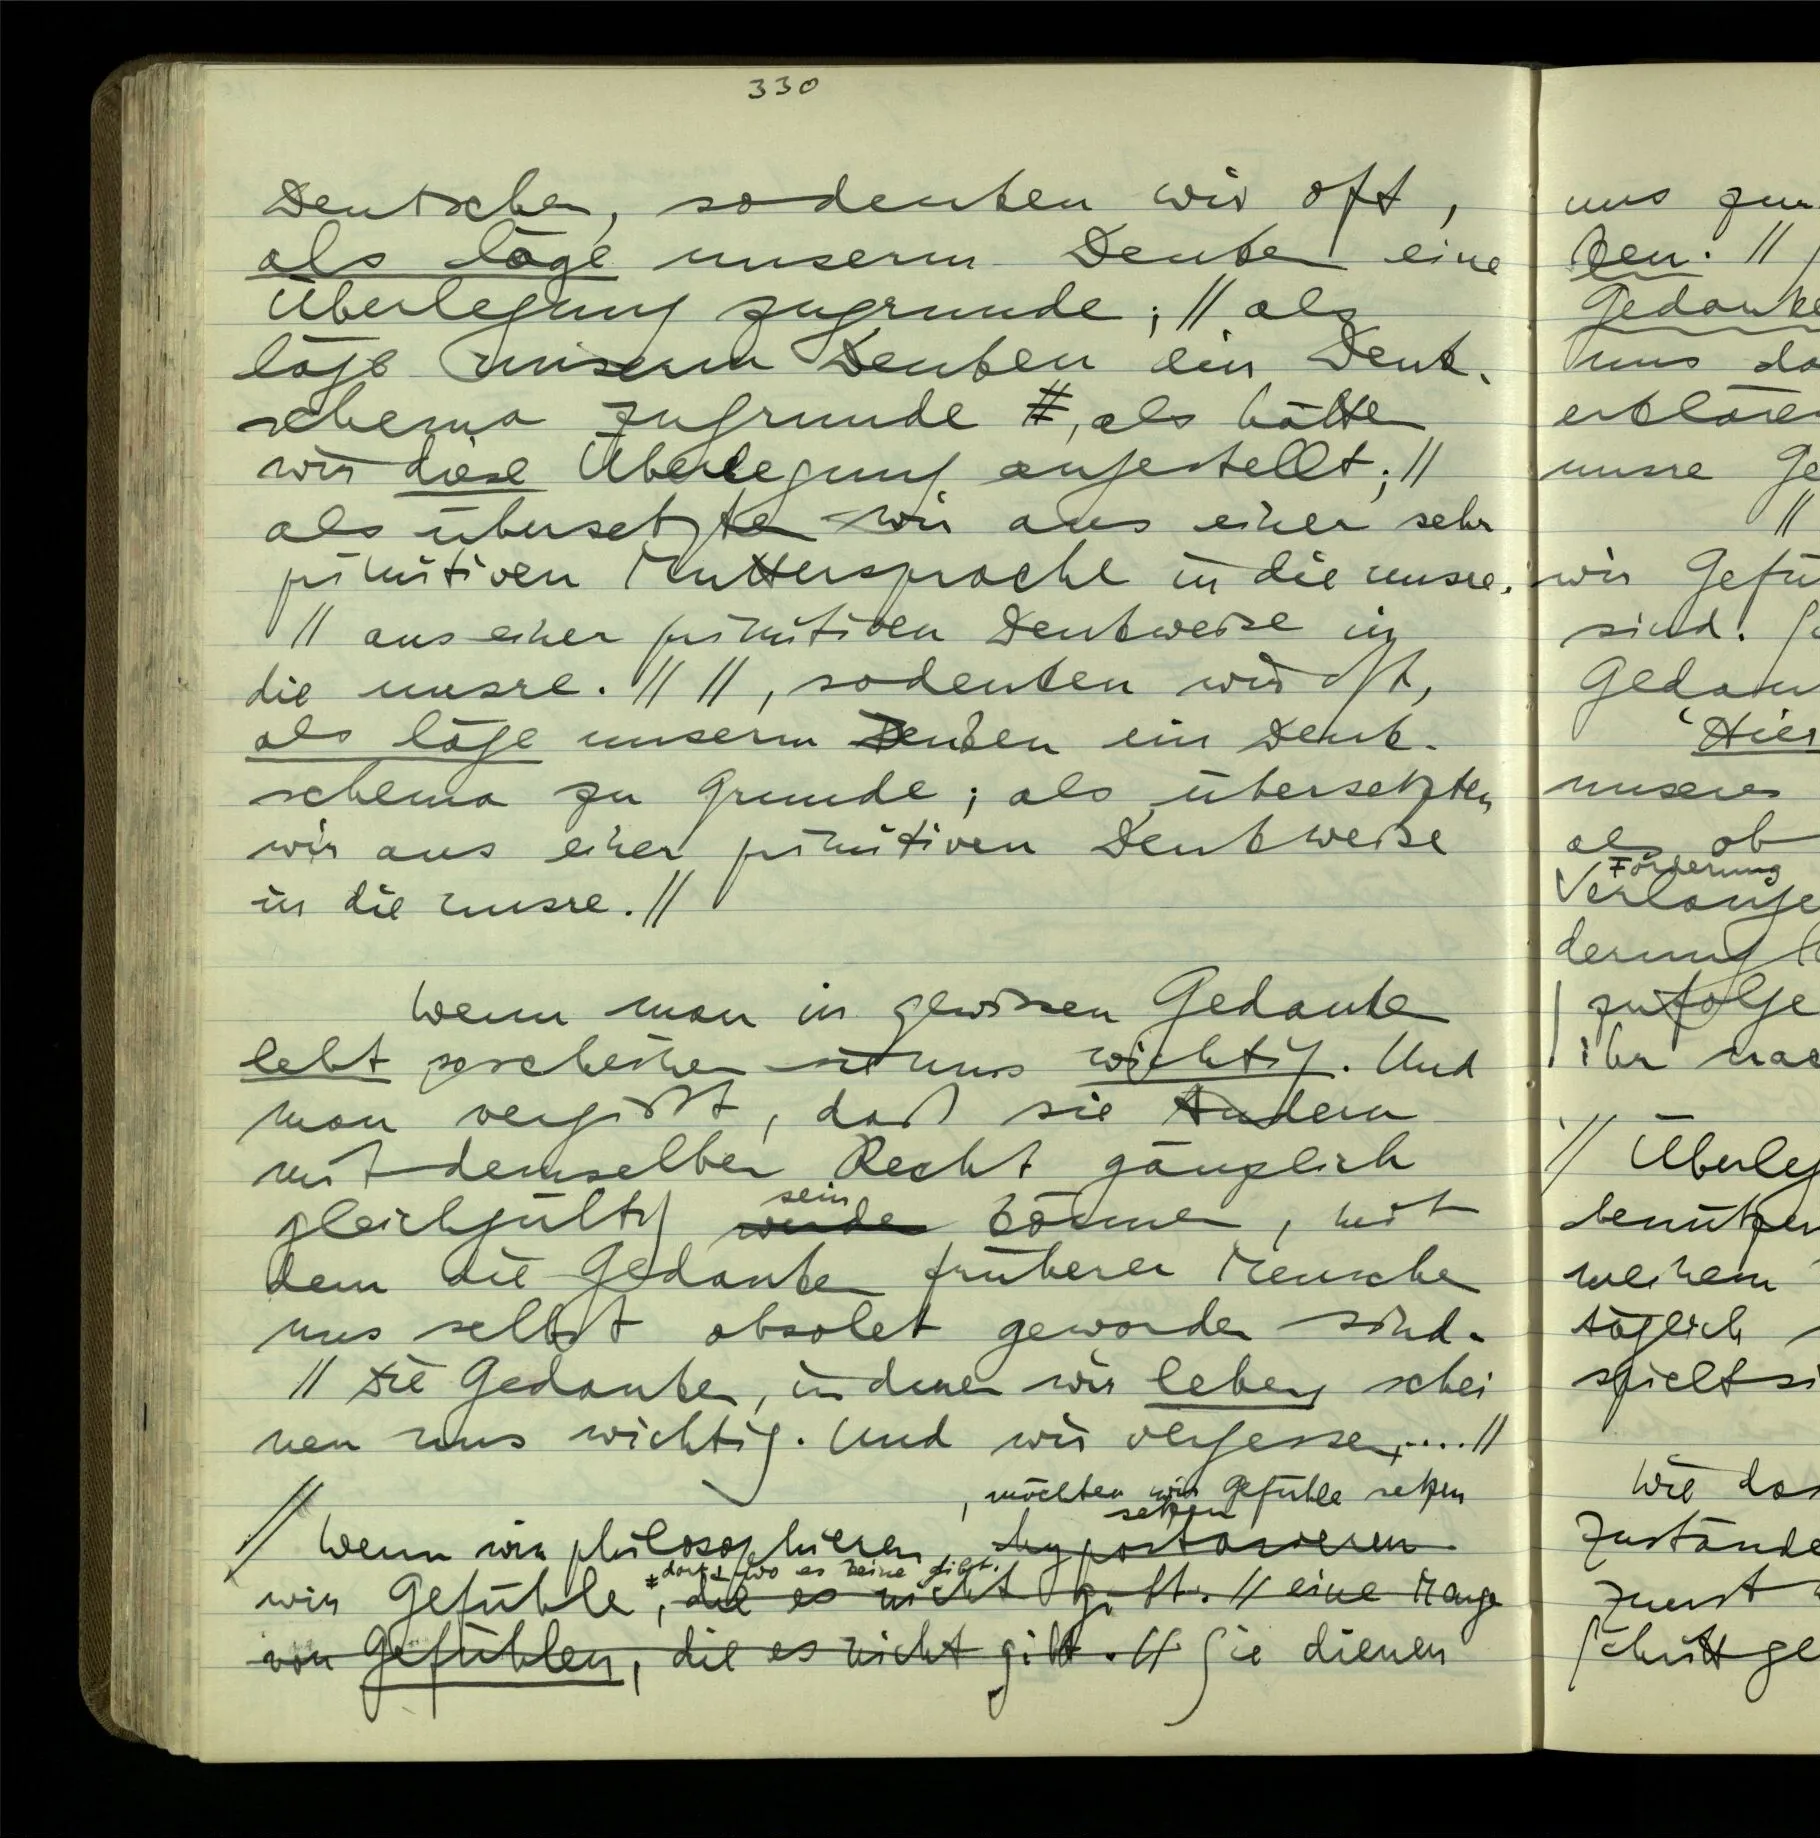 330
Deutschen, so denken wir oft,
als läge unserm Denken eine
Überlegung zugrunde; // als
läge unserm Denken ein Denk-
schema zugrunde //, als hätten
wir diese Überlegung angestellt; //
als übersetzten wir aus einer sehr
primitiven Muttersprache in die unsre.
// aus einer primitiven Denkweise in
die unsre. // //, so denken wir oft,
als läge unserm Denken ein Denk-
schema zu Grunde; als übersetzten
wir aus einer primitiven Denkweise
in die unsre. //
Wenn man in gewissen Gedanken
lebt so scheinen sie uns wichtig. Und
man vergißt, daß sie Andern
mit demselben Recht gänzlich
sein
gleichgültig werden können, mit
dem die Gedanken früherer Menschen
uns selbst obsolet geworden sind.
// Die Gedanken, in denen wir leben schei
nen uns wichtig. Und wir vergessen, .... //
, möchten wir Gefühle setzen
setzen
// Wenn wir philosophieren, hypostasieren
dort, wo es keine gibt.
wir Gefühle, die es nicht gibt. // eine Menge
von Gefühlen, die es nicht gibt. // Sie dienen
uns zur
ken. //
Gedanke
uns da
erkläre
unsre Ge
//
wir Gefü
sind.
Gedan
'Hier
unseres
als ob
Forderung
Verlange
derung
zufolge
ihr nac
// Überleg
benützen
meinem
täglich
spielt si
Wie das
Zustände
zuerst
Schritt ge